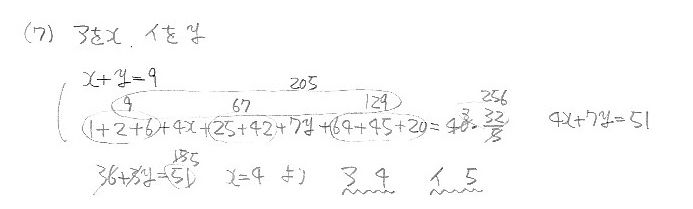 (7) アをx、イをy
x+y=9
205
9 67 129 256
(1+2+6)+4x+(25+42)+7y+(64+45+20)=40· 32/5 4x+7y=51
36+3y=51 x=4 より ア 4 イ 5